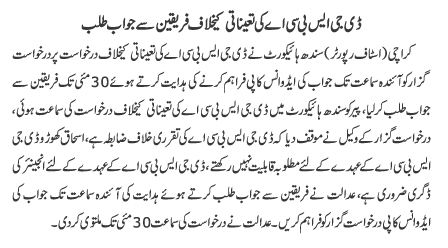 ڈی جی ایس بی سی اے کی تعیناتی کیخلاف فریقین سے جواب طلب
کراچی (اسٹاف رپورٹر) سندھ ہائیکورٹ نے ڈی جی ایس بی سی اے کی تعیناتی کیخلاف درخواست پر درخواست
گزار کو آئندہ سماعت تک جواب کی ایڈوانس کاپی فراہم کرنے کی ہدایت کرتے ہوئے 30 مئی تک فریقین سے
جواب طلب کرلیا، پیر کو سندھ ہائیکورٹ میں ڈی جی ایس بی سی اے کی تعیناتی کیخلاف درخواست کی سماعت ہوئی،
درخواست گزار کے وکیل نے موقف دیا کہ ڈی جی ایس بی سی اے کی تقرری خلاف ضابطہ ہے، اسحاق کھوڑو ڈی جی
ایس بی سی اے کے عہدے کے لئے مطلوبہ قابلیت نہیں رکھتے، ڈی جی ایس بی سی اے کے عہدے کے لئے انجینئر کی
ڈگری ضروری ہے، عدالت نے فریقین سے جواب طلب کرتے ہوئے ہدایت کی آئندہ سماعت تک جواب کی
ایڈوانس کاپی درخواست گزار کو فراہم کریں۔ عدالت نے درخواست کی سماعت 30 مئی تک ملتوی کردی۔